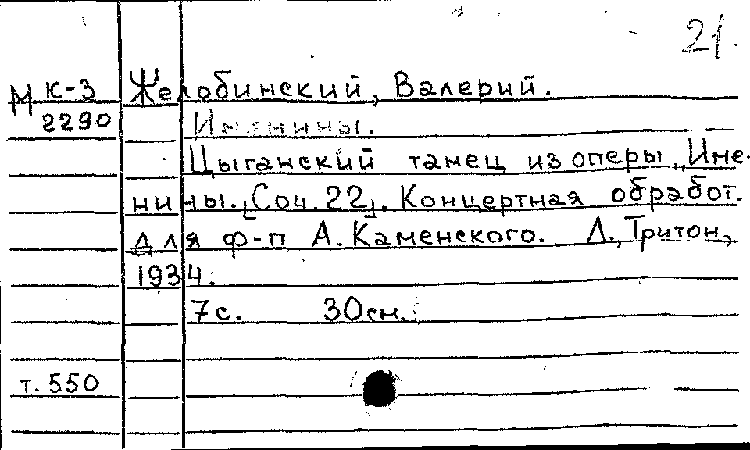 21.
М К-3 Желобинский, Валерий.
2290 Именины.
Цыганский танец из оперы „Име-
нины. [Соч. 22]. Концертная обработ.
для ф-п А. Каменского. Л., Тритон,
1934.
7с. 30см.
т. 550